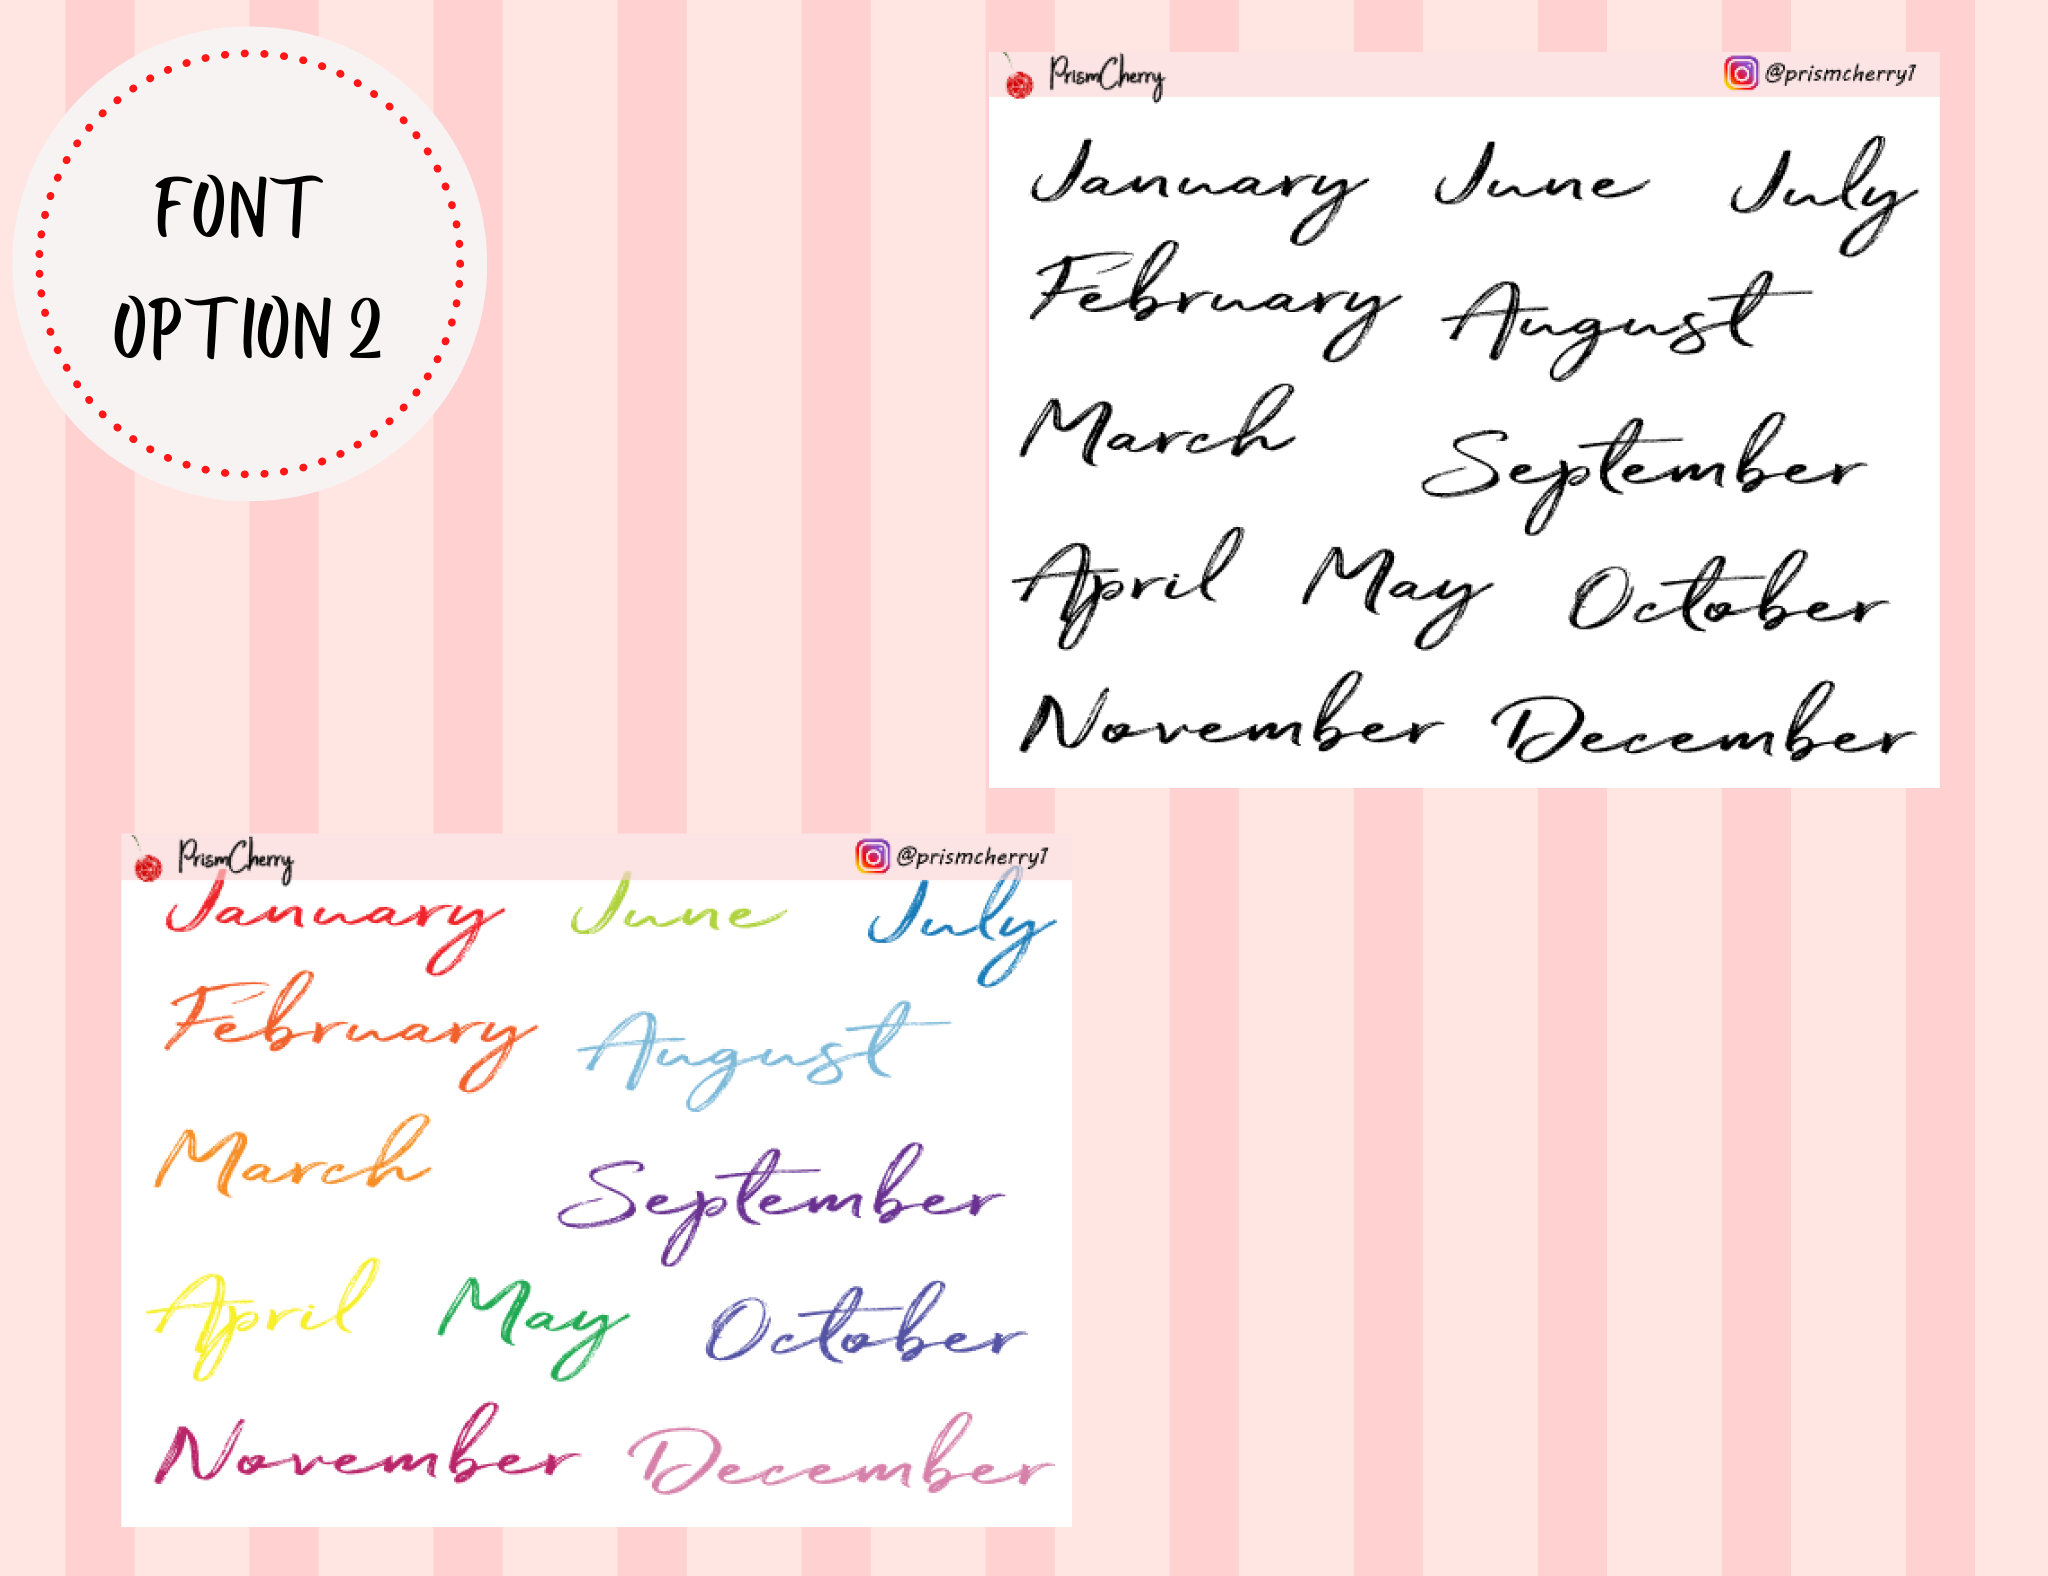 FONT
OPTION 2
PrismCherry @prismcherry1
January June July
February August
March September
April May October
November December
PrismCherry @prismcherry1
January June July
February August
March September
April May October
November December